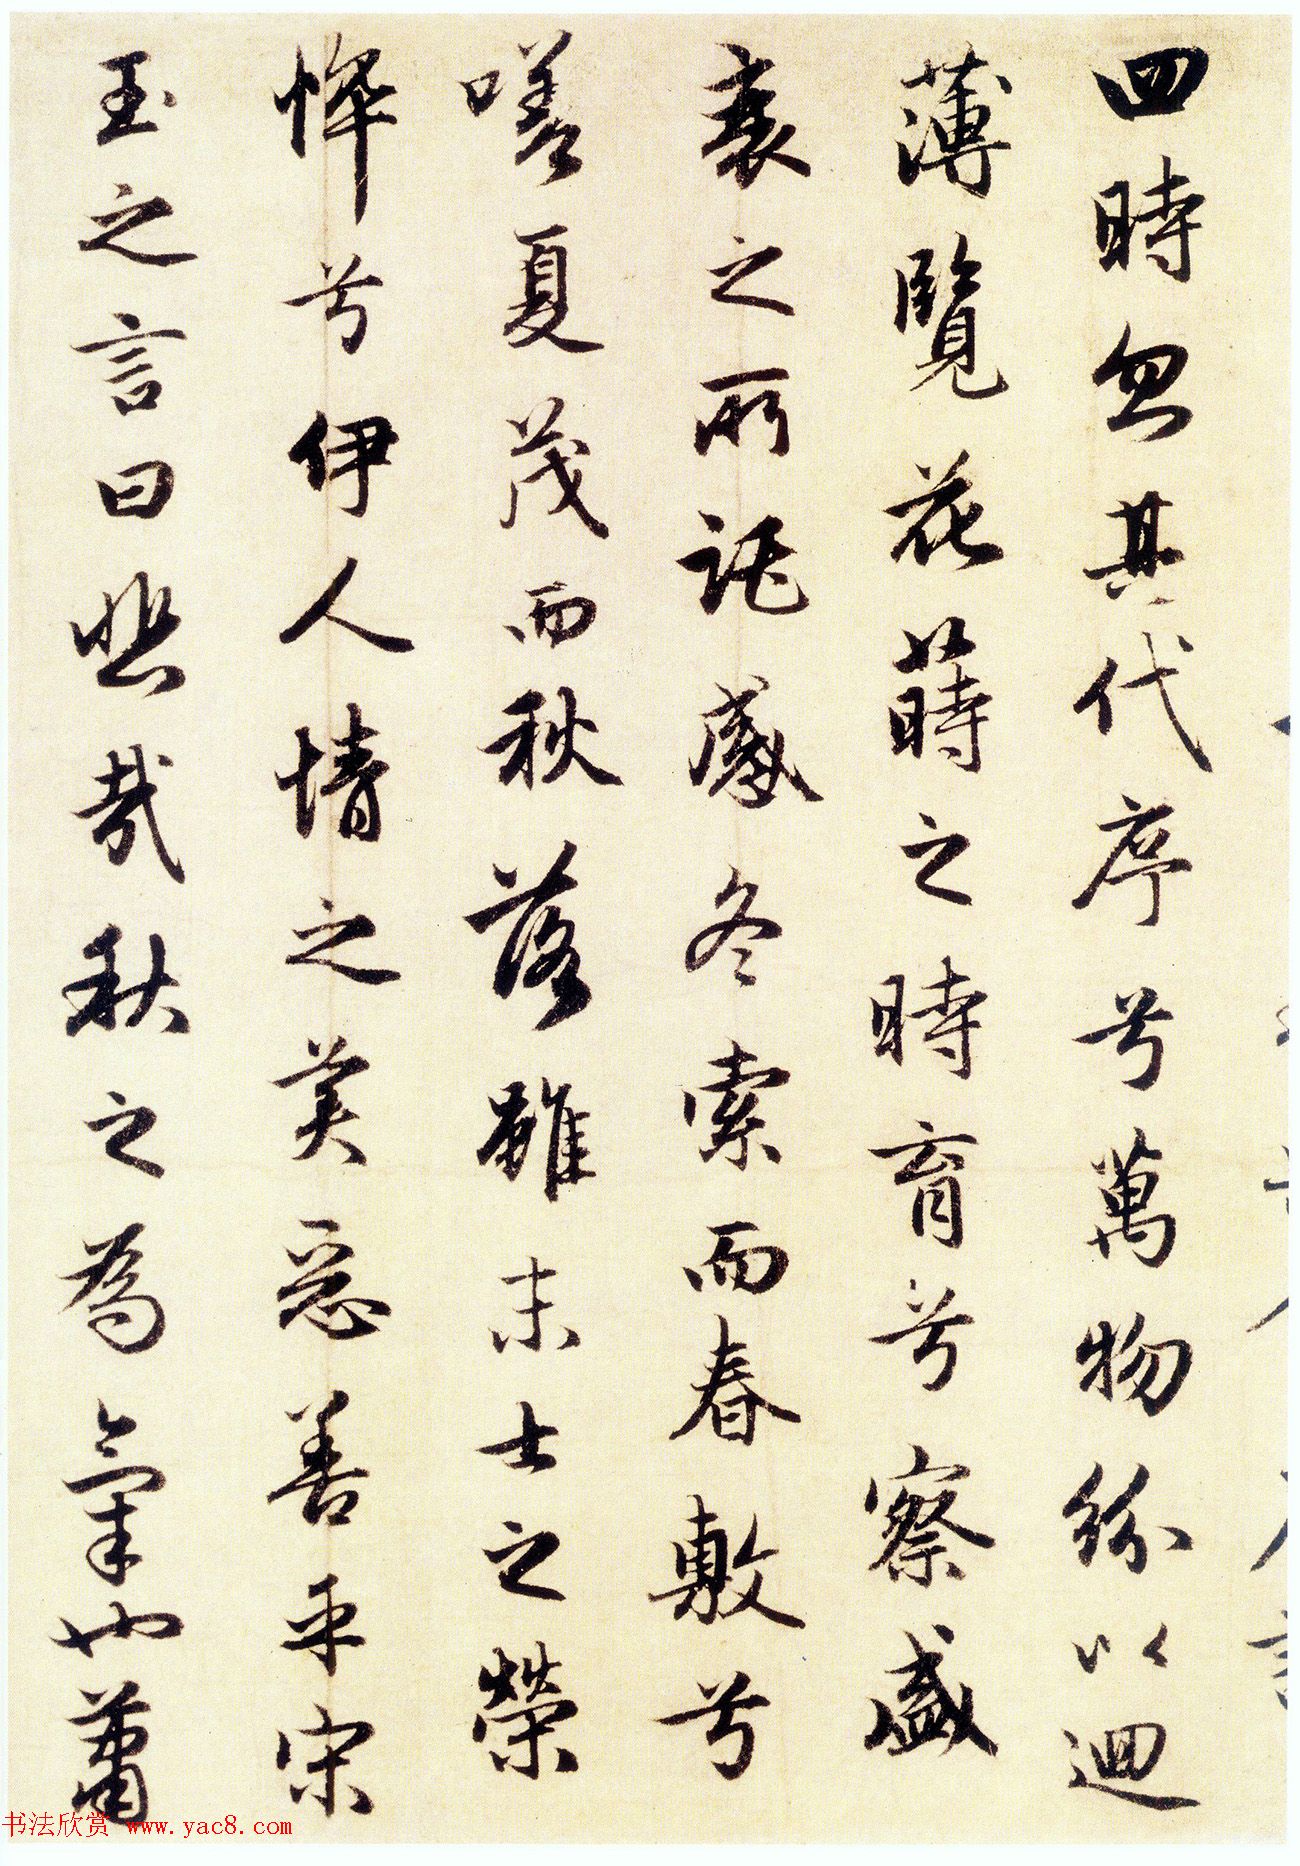 四時忽其代序兮萬物紛以迴
薄覽花蒔之時育兮察盛
衰之所託感冬索而春敷兮
嗟夏茂而秋落雖末士之榮
悴兮伊人情之美惡善乎宋
玉之言曰悲哉秋之為氣也蕭
书法欣赏 www.yac8.com